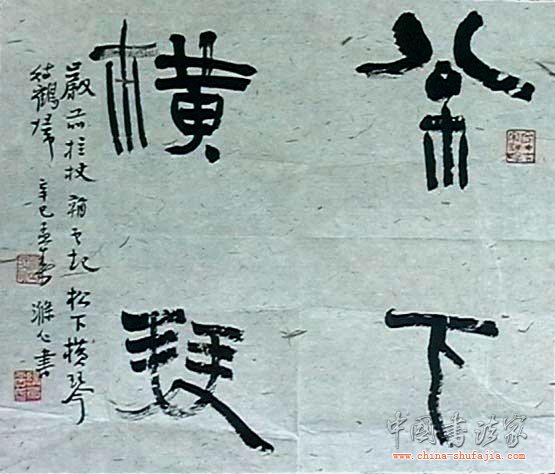 枀下
横琴
嚴前拄杖看云起松下横琴
待鶴歸 辛巳孟春 滌心書
中国书法家
www.china-shufajia.com